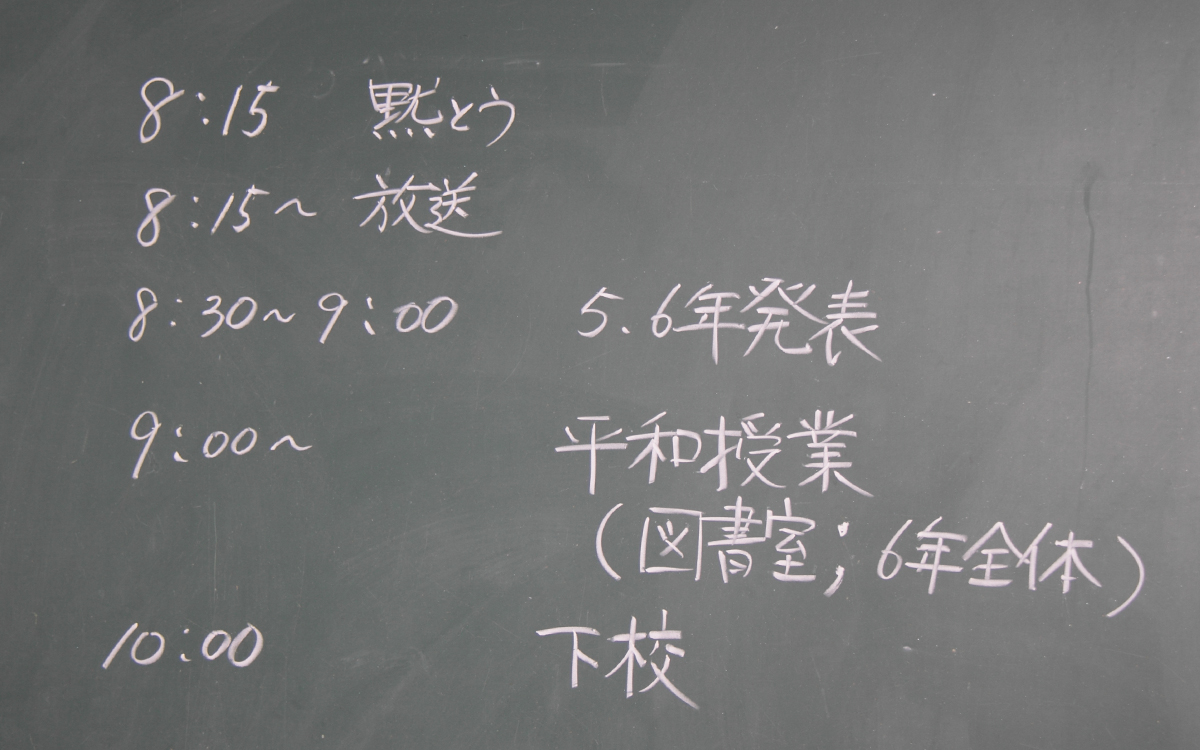 8:15 黙とう
8:15～ 放送
8:30～9:00 5.6年発表
9:00～ 平和授業
(図書室;6年全体)
10:00 下校